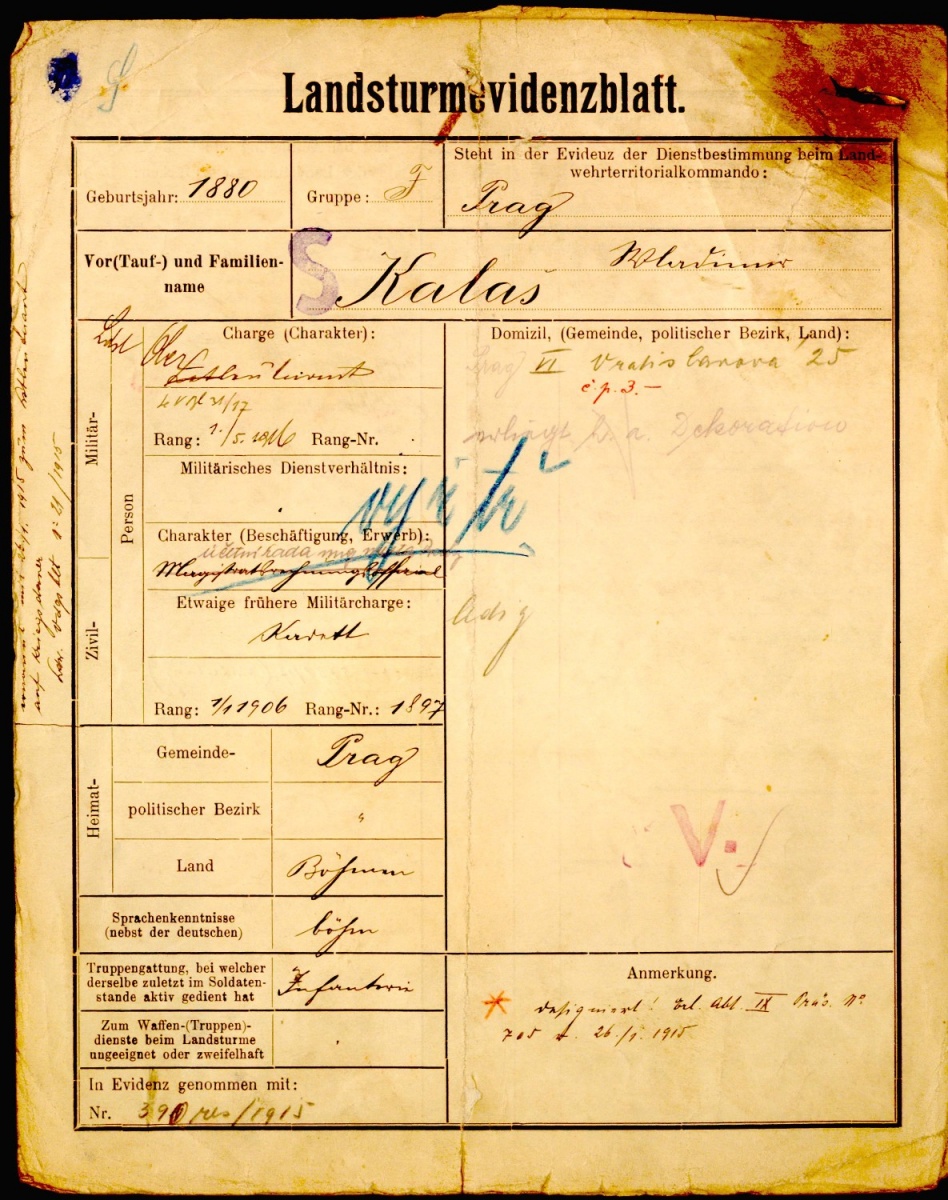 Landsturmevidenzblatt.
Geburtsjahr: 1880
Gruppe: F
Steht in der Evidenz der Dienstbestimmung beim Land-
wehrterritorialkommando:
Prag
Vor(Tauf-) und Familien-
name
S
Wladimir
Kalaš
Militär-
Zivil-
Person
Charge (Charakter):
Ober
Rang: 1./5. 1916 Rang-Nr.
Militärisches Dienstverhältnis:
vyřízeno
Charakter (Beschäftigung, Erwerb):
Magistratsrechnungsoffizial
Etwaige frühere Militärcharge:
Kadett
Rang: 1/1 1906 Rang-Nr.: 1897
Domizil, (Gemeinde, politischer Bezirk, Land):
Prag VI Vratislavova 25
č.p. 3.-
erliegt b. a. Dekoration
Adj
Heimat-
Gemeinde-
Prag
politischer Bezirk
"
Land
Böhmen
V.
Sprachenkenntnisse
(nebst der deutschen)
böhm
Truppengattung, bei welcher
derselbe zuletzt im Soldaten-
stande aktiv gedient hat
Infanterie
Zum Waffen-(Truppen)-
dienste beim Landsturme
ungeeignet oder zweifelhaft
In Evidenz genommen mit:
Nr. 390 res/1915
Anmerkung.
designiert! Abt. IX Präs. No
705 v. 26./1. 1915